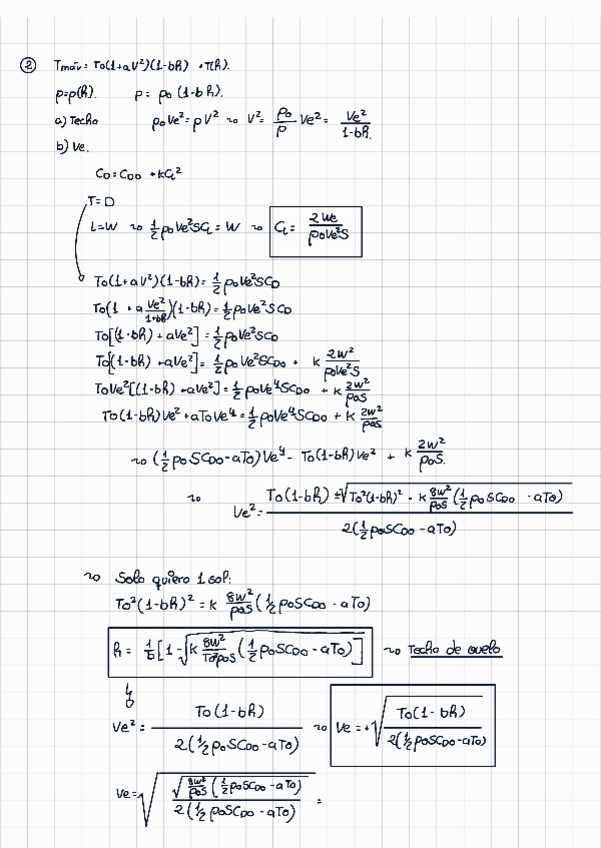 ② Tmáx = To(1+aV²)(1-bh) → T(h).
ρ=ρ(h). ρ = ρ0 (1-bh).
a) Techo ρ0Ve² = ρV² ~> V² = ρ0/ρ Ve² = Ve²/(1-bh)
b) Ve.
CD = CD0 + kCL²
T=D
L=W ~> 1/2 ρ0Ve²SCL = W ~> CL = 2W/(ρ0Ve²S)
To(1+aV²)(1-bh) = 1/2 ρ0Ve²SCD
To(1 + a Ve²/(1+bh))(1-bh) = 1/2 ρ0Ve²SCD
To[(1-bh) + aVe²] = 1/2 ρ0Ve²SCD
To[(1-bh) + aVe²] = 1/2 ρ0Ve²SCD0 + k 2W²/(ρ0Ve²S)
ToVe²[(1-bh) + aVe²] = 1/2 ρ0Ve⁴SCD0 + k 2W²/(ρ0S)
To(1-bh)Ve² + aToVe⁴ = 1/2 ρ0Ve⁴SCD0 + k 2W²/(ρ0S)
~> (1/2 ρ0SCD0 - aTo)Ve⁴ - To(1-bh)Ve² + k 2W²/(ρ0S).
~> Ve² = (To(1-bh) ± √(To²(1-bh)² - k 8W²/(ρ0S) (1/2 ρ0SCD0 - aTo))) / (2(1/2 ρ0SCD0 - aTo))
~> Solo quiero 1 sol:
To²(1-bh)² = k 8W²/(ρ0S) (1/2 ρ0SCD0 - aTo)
h = 1/b [1 - √(k 8W²/(To²ρ0S) (1/2 ρ0SCD0 - aTo))] ~> Techo de vuelo
Ve² = To(1-bh) / (2(1/2 ρ0SCD0 - aTo)) ~> Ve = +√(To(1-bh) / (2(1/2 ρ0SCD0 - aTo)))
Ve = √(√(8W²/(ρ0S) (1/2 ρ0SCD0 - aTo)) / (2(1/2 ρ0SCD0 - aTo))) =